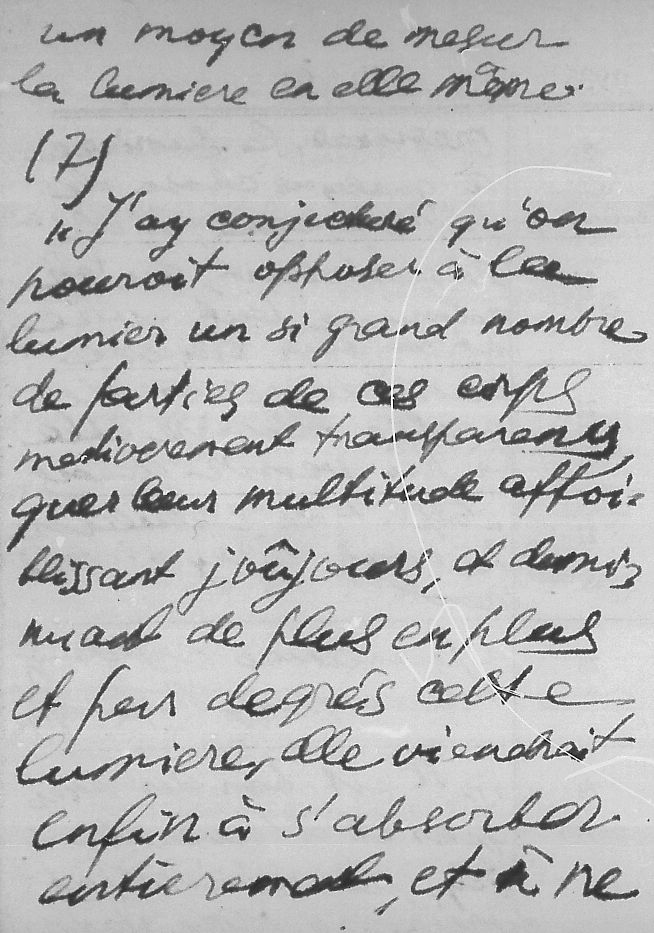 un moyen de mesur
la lumiere en elle même.
(7)
"J'ay conjecturé qu'on
pouroit opposer à la
lumier un si grand nombre
de parties de ces corps
mediocrement transparents,
que leur multitude affoi-
blissant toûjours, et dimi
nuant de plus en plus
et par degrés cette
lumiere, elle viendroit
enfin à s'absorber
entierement, et à ne